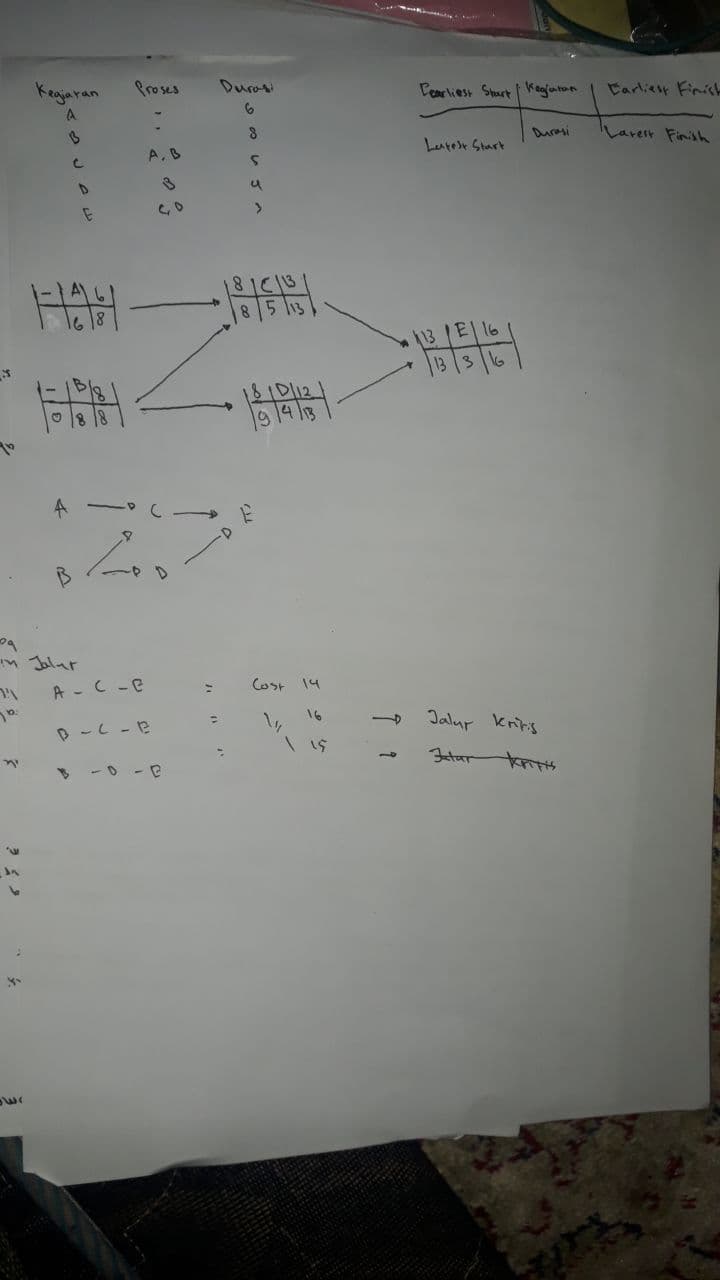 Kegiatan Proses Durasi
A - 6
B - 8
C A, B 5
D B 4
E C, D 3
Earliest Start Kegiatan Earliest Finish
Latest Start Durasi Latest Finish
- A 6
6 8
8 C 13
8 5 13
13 E 16
13 3 16
- B 8
0 8 8
8 D 12
9 4 13
A C E
B D
Jalur
A - C - E = Cost 14
B - C - E = 16 Jalur Kritis
B - D - E = 15 Jalur Kritis